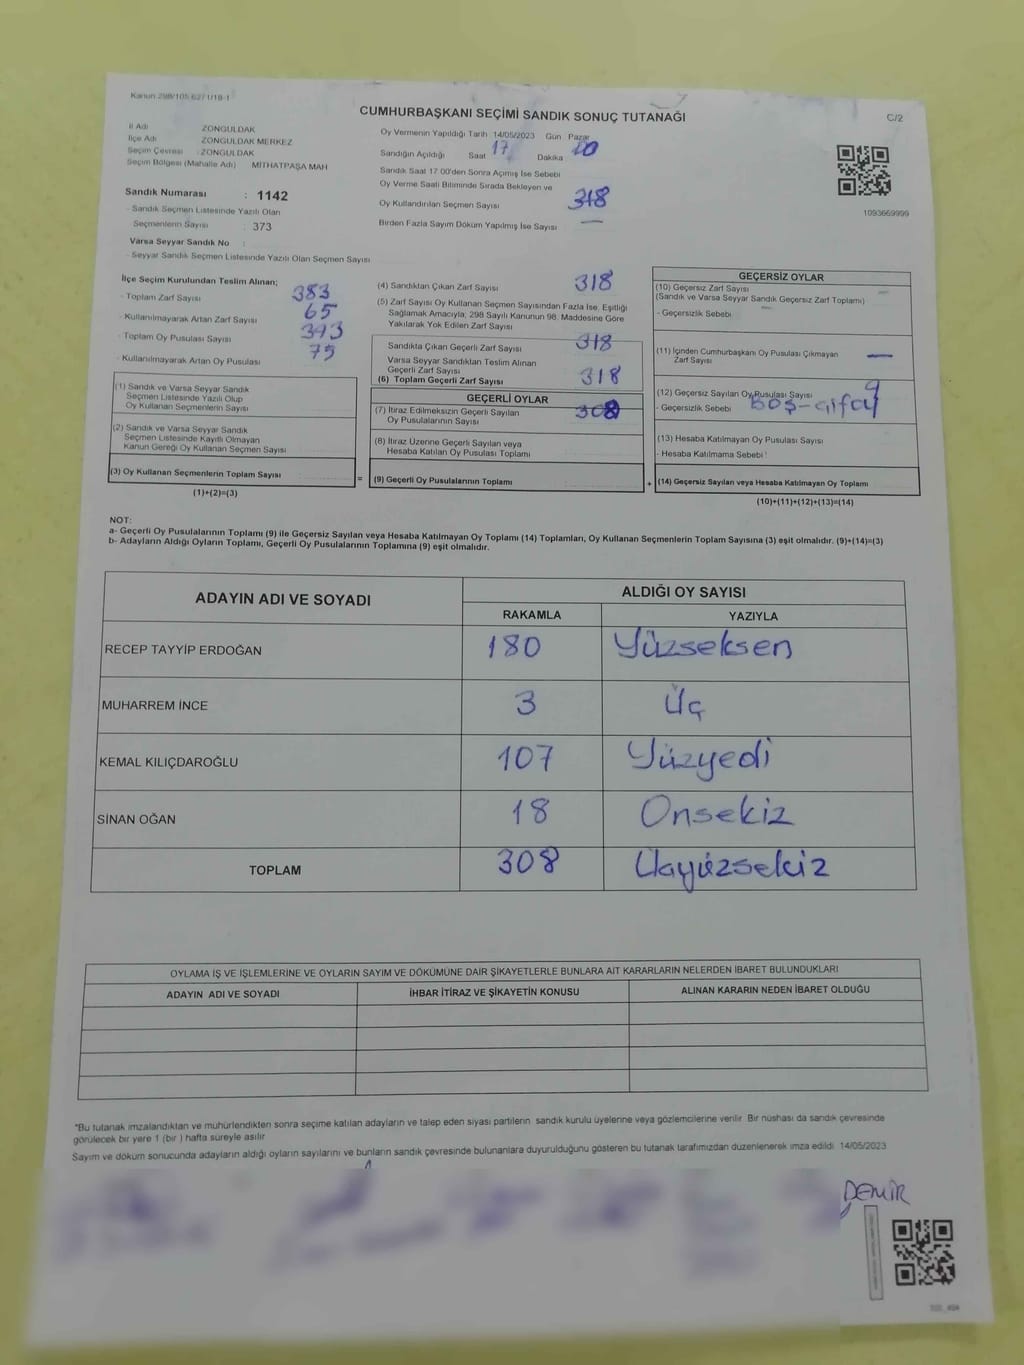 Kanun 298/105 6271/18-1
CUMHURBAŞKANI SEÇİMİ SANDIK SONUÇ TUTANAĞI
C/2
İl Adı ZONGULDAK
İlçe Adı ZONGULDAK MERKEZ
Seçim Çevresi : ZONGULDAK
Seçim Bölgesi (Mahalle Adı) MİTHATPAŞA MAH
Sandık Numarası : 1142
- Sandık Seçmen Listesinde Yazılı Olan
Seçmenlerin Sayısı : 373
Varsa Seyyar Sandık No :
- Seyyar Sandık Seçmen Listesinde Yazılı Olan Seçmen Sayısı
Oy Vermenin Yapıldığı Tarih 14/05/2023 Gün Pazar
Sandığın Açıldığı Saat 17 Dakika
Sandık Saat 17 00'den Sonra Açılmış İse Sebebi
Oy Verme Saati Bitiminde Sırada Bekleyen ve
Oy Kullandırılan Seçmen Sayısı 318
Birden Fazla Sayım Döküm Yapılmış İse Sayısı —
1093669999
İlçe Seçim Kurulundan Teslim Alınan;
- Toplam Zarf Sayısı 383
- Kullanılmayarak Artan Zarf Sayısı 65
- Toplam Oy Pusulası Sayısı 393
- Kullanılmayarak Artan Oy Pusulası 75
(1) Sandık ve Varsa Seyyar Sandık
Seçmen Listesinde Yazılı Olup
Oy Kullanan Seçmenlerin Sayısı
(2) Sandık ve Varsa Seyyar Sandık
Seçmen Listesinde Kayıtlı Olmayan
Kanun Gereği Oy Kullanan Seçmen Sayısı
(3) Oy Kullanan Seçmenlerin Toplam Sayısı =
(1)+(2)=(3)
(4) Sandıktan Çıkan Zarf Sayısı 318
(5) Zarf Sayısı Oy Kullanan Seçmen Sayısından Fazla İse, Eşitliği
Sağlamak Amacıyla; 298 Sayılı Kanunun 98. Maddesine Göre
Yakılarak Yok Edilen Zarf Sayısı
Sandıkta Çıkan Geçerli Zarf Sayısı 318
Varsa Seyyar Sandıktan Teslim Alınan
Geçerli Zarf Sayısı
(6) Toplam Geçerli Zarf Sayısı 318
GEÇERLİ OYLAR
(7) İtiraz Edilmeksizin Geçerli Sayılan 308
Oy Pusulalarının Sayısı
(8) İtiraz Üzerine Geçerli Sayılan veya
Hesaba Katılan Oy Pusulası Toplamı
(9) Geçerli Oy Pusulalarının Toplamı +
GEÇERSİZ OYLAR
(10) Geçersiz Zarf Sayısı —
(Sandık ve Varsa Seyyar Sandık Geçersiz Zarf Toplamı)
- Geçersizlik Sebebi
(11) İçinden Cumhurbaşkanı Oy Pusulası Çıkmayan —
Zarf Sayısı
(12) Geçersiz Sayılan Oy Pusulası Sayısı 9
- Geçersizlik Sebebi BOŞ-çift oy
(13) Hesaba Katılmayan Oy Pusulası Sayısı
- Hesaba Katılmama Sebebi :
(14) Geçersiz Sayılan veya Hesaba Katılmayan Oy Toplamı
(10)+(11)+(12)+(13)=(14)
NOT:
a- Geçerli Oy Pusulalarının Toplamı (9) ile Geçersiz Sayılan veya Hesaba Katılmayan Oy Toplamı (14) Toplamları, Oy Kullanan Seçmenlerin Toplam Sayısına (3) eşit olmalıdır. (9)+(14)=(3)
b- Adayların Aldığı Oyların Toplamı, Geçerli Oy Pusulalarının Toplamına (9) eşit olmalıdır.
ADAYIN ADI VE SOYADI ALDIĞI OY SAYISI
RAKAMLA YAZIYLA
RECEP TAYYİP ERDOĞAN 180 Yüzseksen
MUHARREM İNCE 3 Üç
KEMAL KILIÇDAROĞLU 107 Yüzyedi
SİNAN OĞAN 18 Onsekiz
TOPLAM 308 Üçyüzsekiz
OYLAMA İŞ VE İŞLEMLERİNE VE OYLARIN SAYIM VE DÖKÜMÜNE DAİR ŞİKAYETLERLE BUNLARA AİT KARARLARIN NELERDEN İBARET BULUNDUKLARI
ADAYIN ADI VE SOYADI İHBAR İTİRAZ VE ŞİKAYETİN KONUSU ALINAN KARARIN NEDEN İBARET OLDUĞU
*Bu tutanak imzalandıktan ve mühürlendikten sonra seçime katılan adayların ve talep eden siyasi partilerin sandık kurulu üyelerine veya gözlemcilerine verilir. Bir nüshası da sandık çevresinde
görülecek bir yere 1 (bir ) hafta süreyle asılır
Sayım ve döküm sonucunda adayların aldığı oyların sayılarını ve bunların sandık çevresinde bulunanlara duyurulduğunu gösteren bu tutanak tarafımızdan düzenlenerek imza edildi 14/05/2023
DEMİR